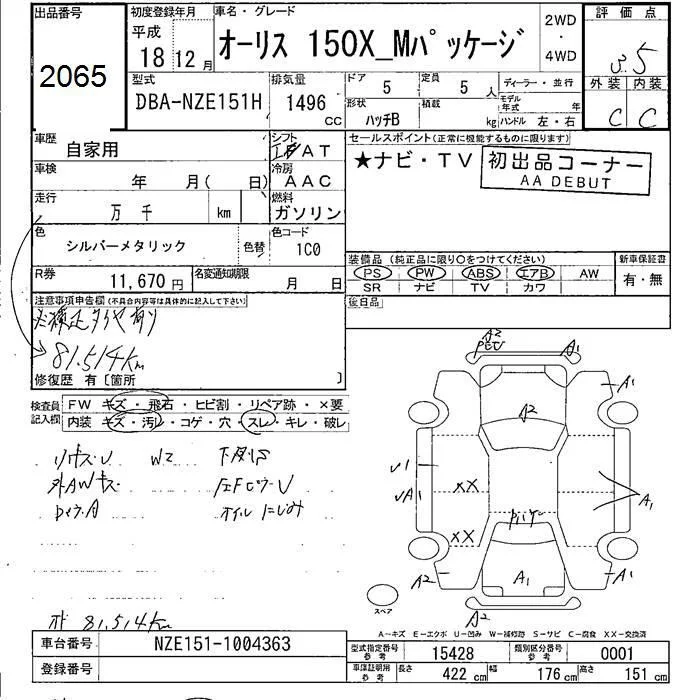 出品番号
2065
初度登録年月
平成
18 12月
車名・グレード
オーリス 150X_Mパッケージ
2WD
・
4WD
評価点
3.5
外装 内装
C C
型式
DBA-NZE151H
排気量
1496
CC
ドア
5
定員
5 人
ディーラー・並行
形状
ハッチB
積載
kg
モデル年式
年
ハンドル 左・右
車歴
自家用
シフト
AT
セールスポイント(正常に機能するものに限ります)
★ナビ・TV
初出品コーナー
AA DEBUT
車検
年 月( 日)
冷房
AAC
走行
万 千
km
燃料
ガソリン
色
シルバーメタリック
色替
色コード
1C0
装備品 (純正品に限り○をつけてください)
PS PW ABS エアB AW
SR ナビ TV カワ
新車保証書
有・無
R券
11,670円
名変通知期限
月 日
後日品
注意事項申告欄(不具合内容等は具体的に記入して下さい)
81,514Km
修復歴 有〔箇所 〕
検査員記入欄
FW キズ・飛石・ヒビ割・リペア跡・×要
内装 キズ・汚レ・コゲ・穴・スレ・キレ・破レ
W2
オイルにじみ
A2
A1
A1
A2
A1
XX
XX
A1
A2
A1
A1
A2
スペア
81,514Km
A-キズ E-エクボ U-凹み W-補修跡 S-サビ C-腐食 XX-交換済
車台番号
NZE151-1004363
登録番号
型式指定番号
参考
15428
類別区分番号
参考
0001
車庫証明用
参考
長さ
422 cm
幅
176 cm
高さ
151 cm